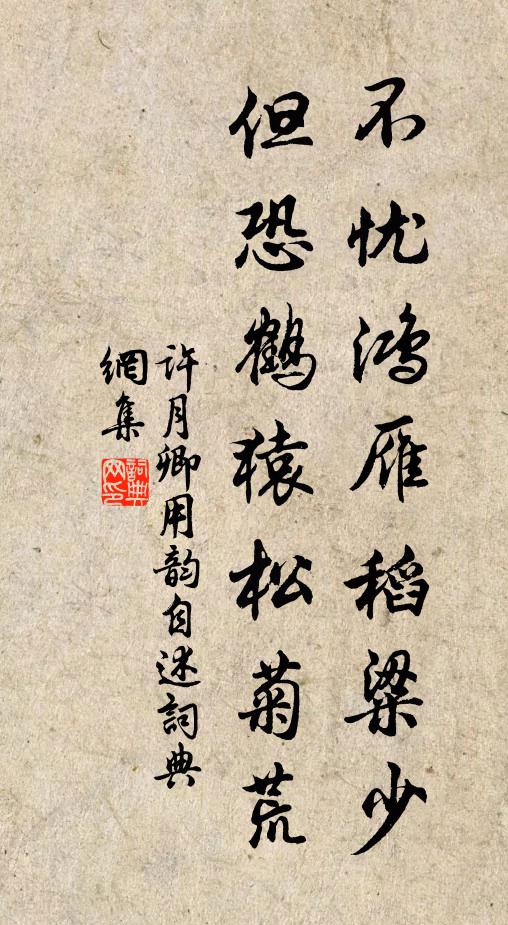 不忧鸿雁稻粱少
但恐鶴猿松菊荒
许月卿用韵自述詞典
網集
詞典网印